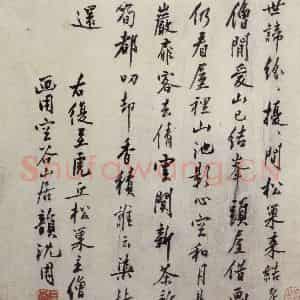 世諦紛擾擾問松巢來結
僧閒愛山已結峯頭屋借画
仍看屋裡山池影心空和月
巖扉客去倩雲關新茶
筍都叨却香積誰云無
還
右復至虎丘松巢主僧
画用空谷山居韻沈周
Shufawang.CN